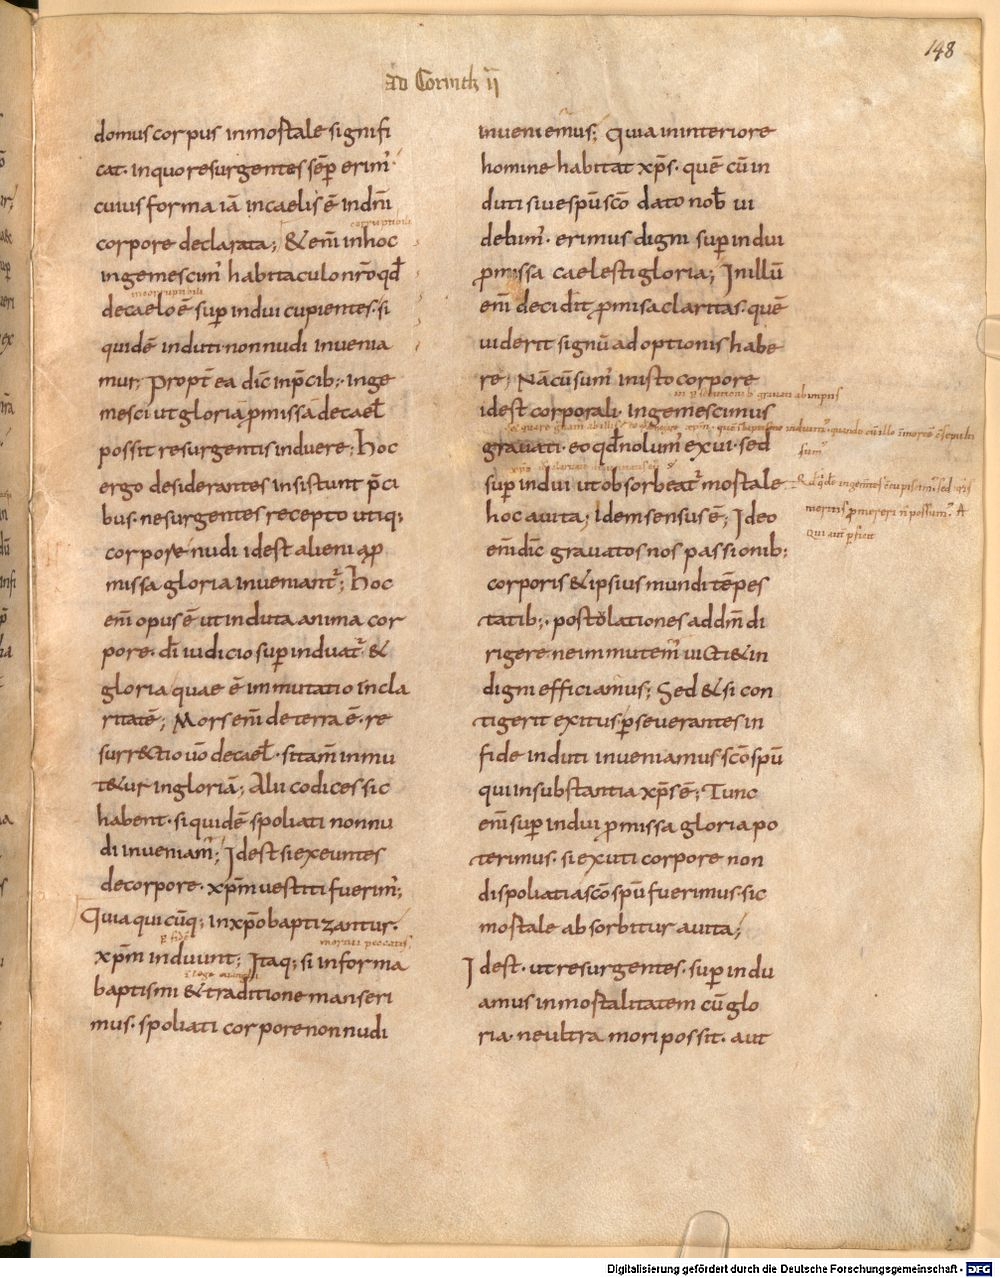 148
ad Corinth ii
domus corpus inmortale signifi
cat· in quo resurgentes sēp erim̄·
cuius forma iā in caelis ē in dn̄i
corpore declarata; & enī in hoc
ingemescim̄ habitaculo nr̄o qd̄
de caelo ē sup indui cupientes· si
quidē induti non nudi inuenia
mur; Propt ea dic̄ in p̄cib;· inge
mesci ut gloriā p̄missā de cael̄
possit resurgentis induere; Hoc
ergo desiderantes insistunt p̄ci
bus· ne surgentes recepto utiq;
corpore nudi idest alieni a p̄
missa gloria inueniant̄; Hoc
enī opus ē ut induta anima cor
pore· dī iudicio sup induat̄ &
gloria quae ē inmutatio in cla
ritatē; Mors enī de terra ē· re
surr&ctio uō de cael̄· si tam̄ inmu
t&ur in gloriā; Alii codices sic
habent· si quidē spoliati non nu
di inueniam̄; Idest si exeuntes
de corpore· xp̄m uestiti fuerim̄;
Quia qui cūq; in xp̄o baptizantur·
xp̄m induunt; Itaq; si in forma
baptismi & traditione manseri
mus· spoliati corpore non nudi
inueniemus; Quia in interiore
homine habitat xp̄s· quē cū in
duti siue sp̄u sc̄o dato nob̄ ui
debim̄· erimus digni sup indui
p̄missa caelesti gloria; In illū
enī decidit p̄misa claritas· quē
uiderit signū adoptionis habe
re; Nā cū sum̄ in isto corpore
idest corporali· ingemescimus
grauati· eo qd̄ nolum̄ exui· sed
sup indui ut obsorbeat̄ mortale
hoc a uita; Idem sensus ē; Ideo
enī dic̄ grauatos nos passionib;
corporis & ipsius mundi tēpes
tatib;· postolationes ad dm̄ di
rigere ne inmutem̄ uicti & in
digni efficiamus; Sed & si con
tigerit exitus p̄seuerantes in
fide induti inueniamus sc̄o sp̄u
qui in substantia xp̄s ē; Tunc
enī sup indui p̄missa gloria po
terimus· si exuti corpore non
dispoliati a sc̄o sp̄u fuerimus· sic
mortale absorbitur a uita;
Idest· ut resurgentes· sup indu
amus inmortalitatem cū glo
ria· ne ultra mori possit· aut
Digitalisierung gefördert durch die Deutsche Forschungsgemeinschaft - DFG